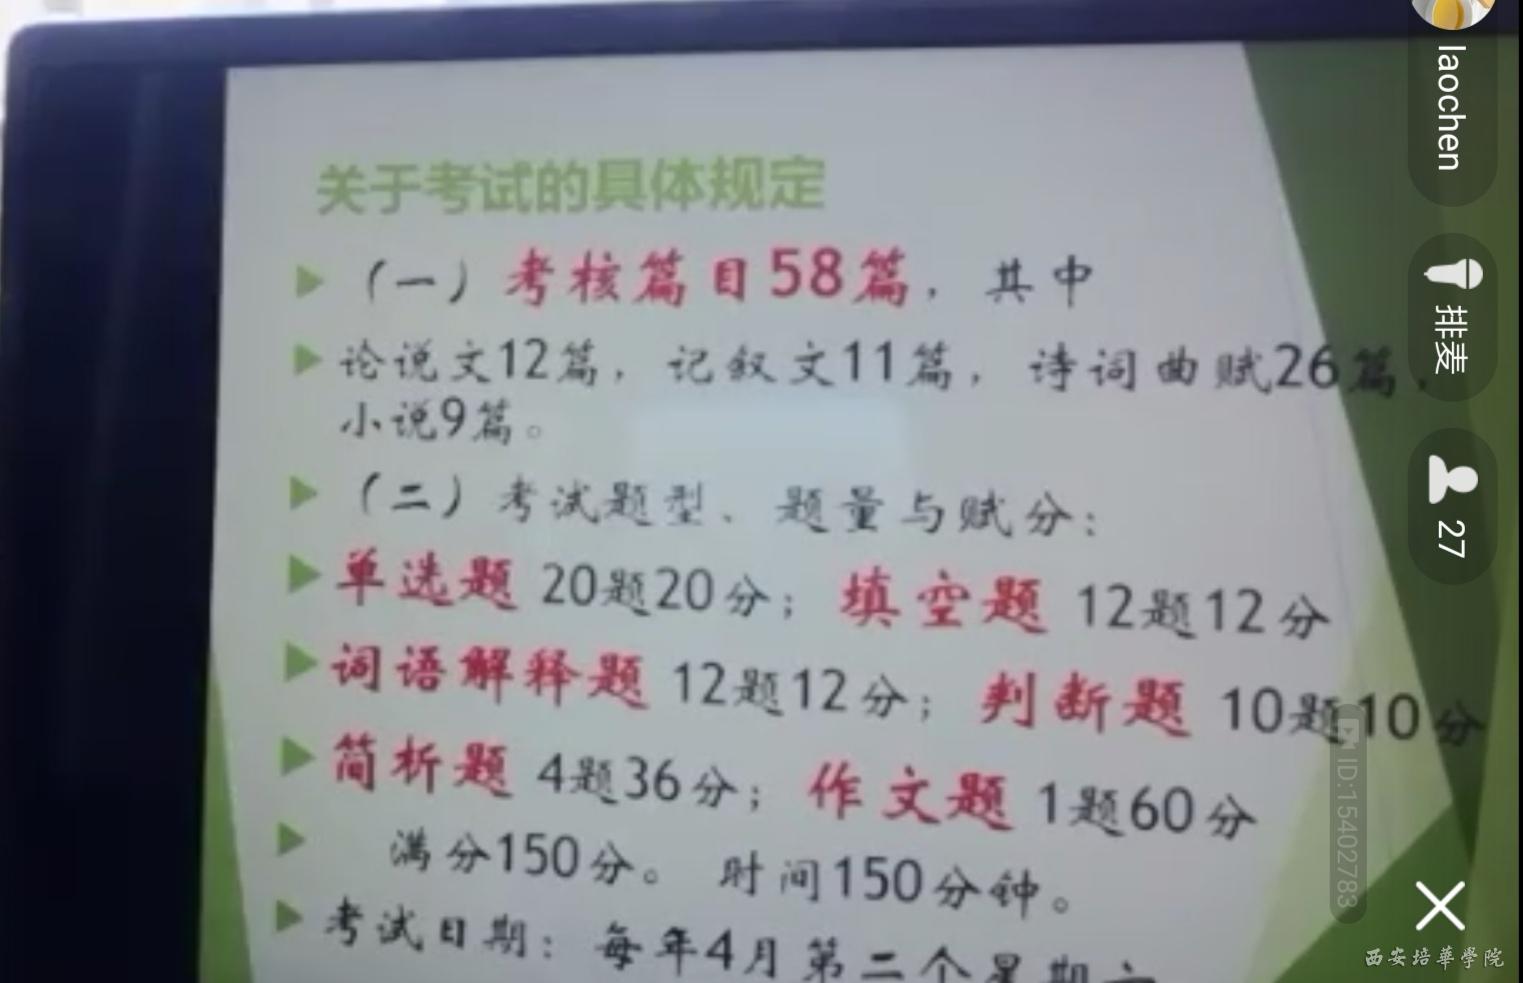 关于考试的具体规定
（一）考核篇目58篇，其中
论说文12篇，记叙文11篇，诗词曲赋26篇，
小说9篇。
（二）考试题型、题量与赋分：
单选题 20题20分；填空题 12题12分
词语解释题 12题12分；判断题 10题10分
简析题 4题36分；作文题 1题60分
满分150分。 时间150分钟。
考试日期：每年4月第二个星期六
laochen
排麦
27
ID:15402783
西安培華學院